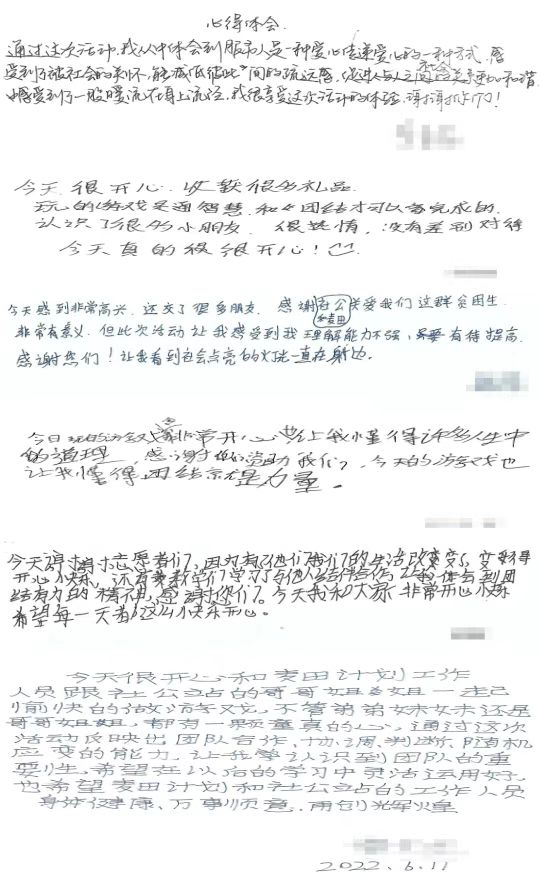 心得体会
通过这次活动,我从中体会到服务人是一种爱心传递爱心的一种方式,感
受到了被社会的关怀,能减低彼此间的疏远感,促进人与人之间的社会关系更加和谐
感受到了一股暖流在身上流淌,我很享受这次活动的体验,谢谢你们!
今天很开心.收获很多礼品
玩的游戏是通智慧和团结才可以完成的.
认识了很多小朋友,很热情,没有差别对待
今天真的很很开心!
今天感到非常高兴,还交了很多朋友,感谢社公和麦田关爱我们这群贫困生
非常有意义.但此次活动让我感受到我理解能力不强、需要有待提高
感谢您们!让我看到社会点亮的灯光一直在身边.
今日玩的游戏非常开心,让我懂得许多人生中
的道理,感谢他们资助我们,今天的游戏也
让我懂得,团结就是力量。
今天谢谢志愿者们,因为有了他们我们的生活改变了,变得
开心快乐,还有教我们学习,让我体会到团
结有力的精神,感谢你们。今天我和大家非常开心快乐
希望每一天都这么快乐开心。
今天很开心和麦田计划工作
人员跟社公站的哥哥姐姐一起
愉快的做游戏,不管弟弟妹妹还是
哥哥姐姐,都有一颗童真的心,通过这次
活动反映出团队合作、协调、判断、随机
应变的能力,让我学认识到团队的重
要性,希望在以后的学习中灵活运用好,
也希望麦田计划和社公站的工作人员
身体健康、万事顺意,再创辉煌
2022.6.11